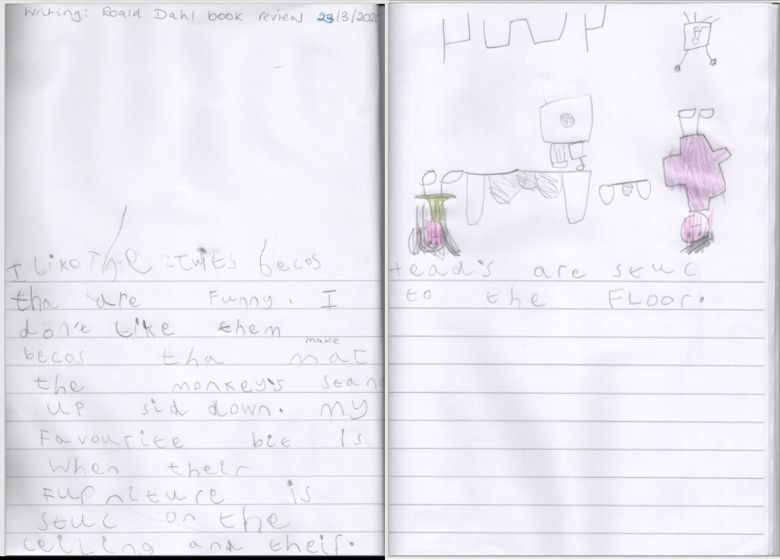 Writing: Roald Dahl book review 23/3/202
I Like The Twits becos
tha are Funny. I
don't Like them
becos tha mac
make
the monkey's stand
up sid down. My
Favourite bit is
when their
Furniture is
stuc on the
ceiLLing and their.
head's are stuc
to the FLOOR.